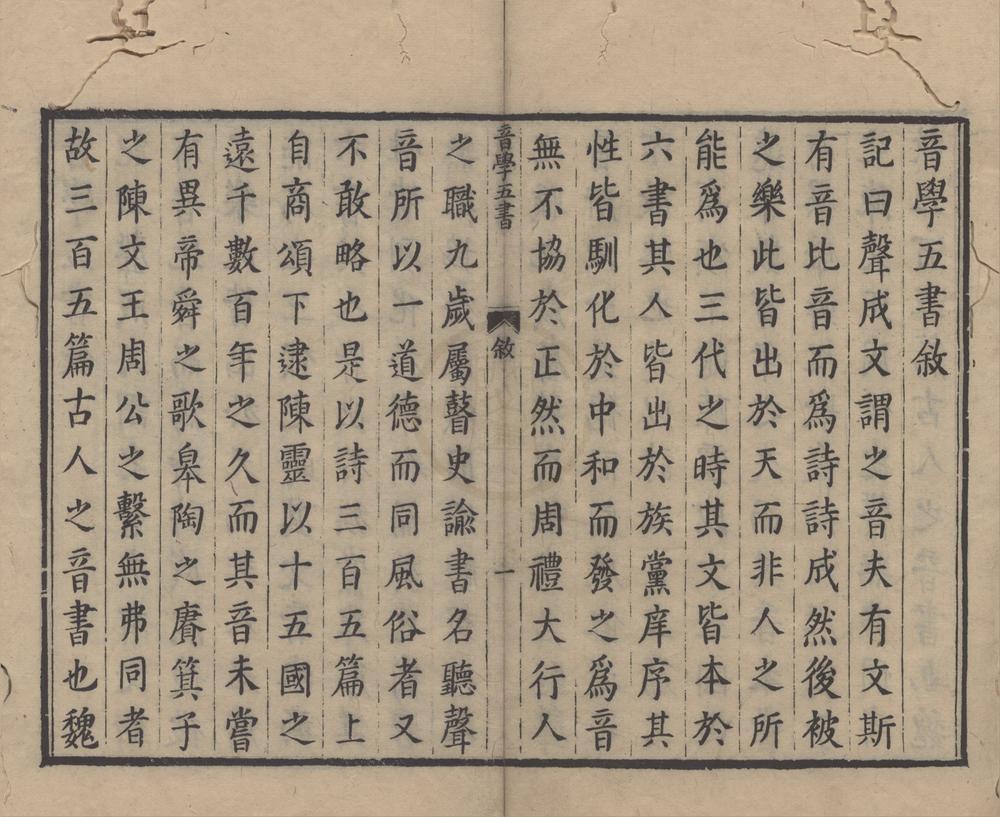 音學五書敘
記曰聲成文謂之音夫有文斯
有音比音而爲詩詩成然後被
之樂此皆出於天而非人之所
能爲也三代之時其文皆本於
六書其人皆出於族黨庠序其
性皆馴化於中和而發之爲音
無不協於正然而周禮大行人
音學五書
敘
一
之職九歲屬瞽史諭書名聽聲
音所以一道德而同風俗者又
不敢略也是以詩三百五篇上
自商頌下逮陳靈以十五國之
遠千數百年之久而其音未嘗
有異帝舜之歌皋陶之賡箕子
之陳文王周公之繫無弗同者
故三百五篇古人之音書也魏